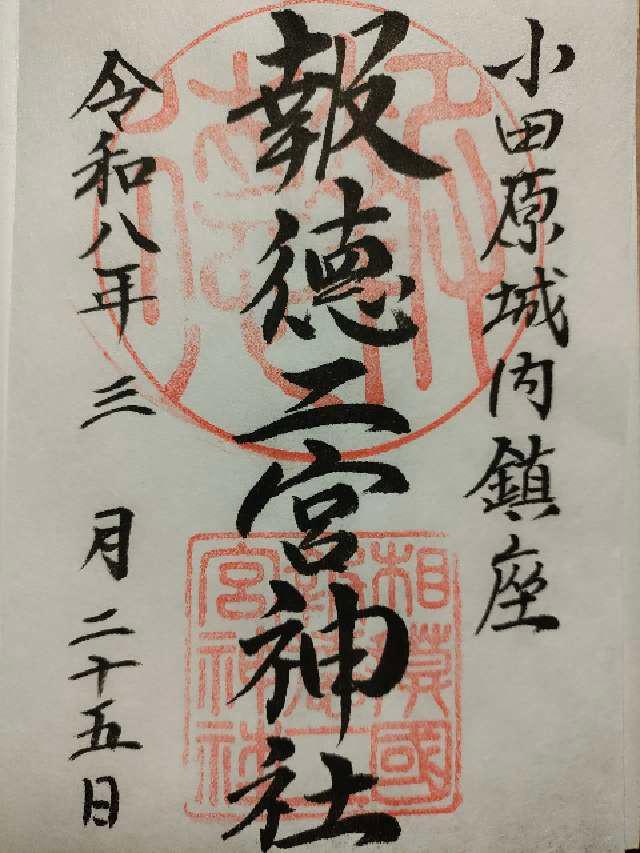 小田原城内鎮座
報徳二宮神社
令和八年三月二十五日
相模國
報徳二
宮神社